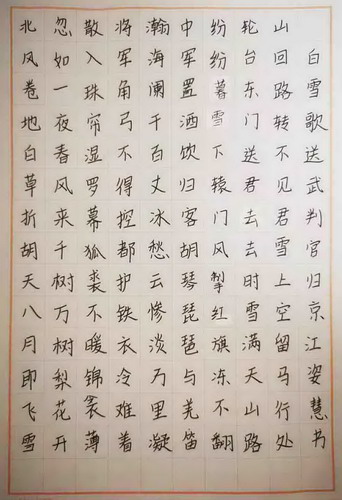 北风卷地白草折胡天八月即飞雪
忽如一夜春风来千树万树梨花开
散入珠帘湿罗幕狐裘不暖锦衾薄
将军角弓不得控都护铁衣冷难着
瀚海阑干百丈冰愁云惨淡万里凝
中军置酒饮归客胡琴琵琶与羌笛
纷纷暮雪下辕门风掣红旗冻不翻
轮台东门送君去去时雪满天山路
山回路转不见君雪上空留马行处
白雪歌送武判官归京江姿慧书